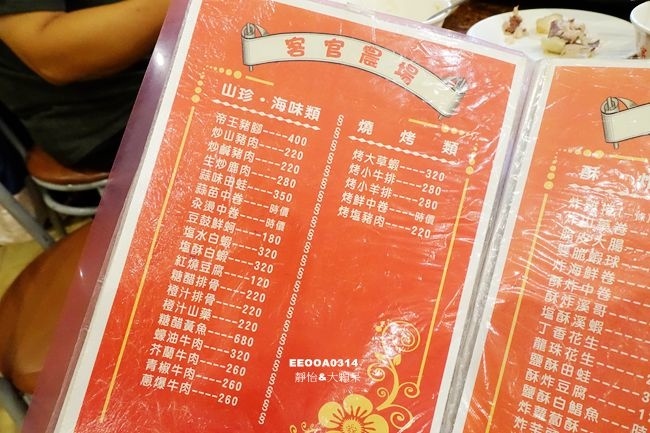 客官農場
山珍·海味類
帝王豬腳----400
炒山豬肉----220
炒鹹豬肉----220
生炒鹿肉----280
蒜味田蛙----350
蒜苗中卷----時價
汆燙中卷----時價
豆鼓鮮蚵----180
塩水白蝦----320
塩酥白蝦----320
紅燒豆腐----120
糖醋排骨----220
橙汁排骨----220
橙汁山藥----220
糖醋黃魚----680
蠔油牛肉----320
芥蘭牛肉----260
青椒牛肉----260
蔥爆牛肉----260
燒烤類
烤大草蝦----320
烤小牛排----280
烤小羊排----280
烤鮮中卷----時價
烤塩豬肉----220
酥
大腸
脆蝦球
炸海鮮卷
酥炸中卷
酥炸溪哥
塩酥溪蝦
丁香花生
龍珠花生
鹽酥田蛙
酥炸豆腐
鹽酥白鯧魚
炸蘿蔔酥
炸芋
EEOOA0314
靜怡&大顆呆